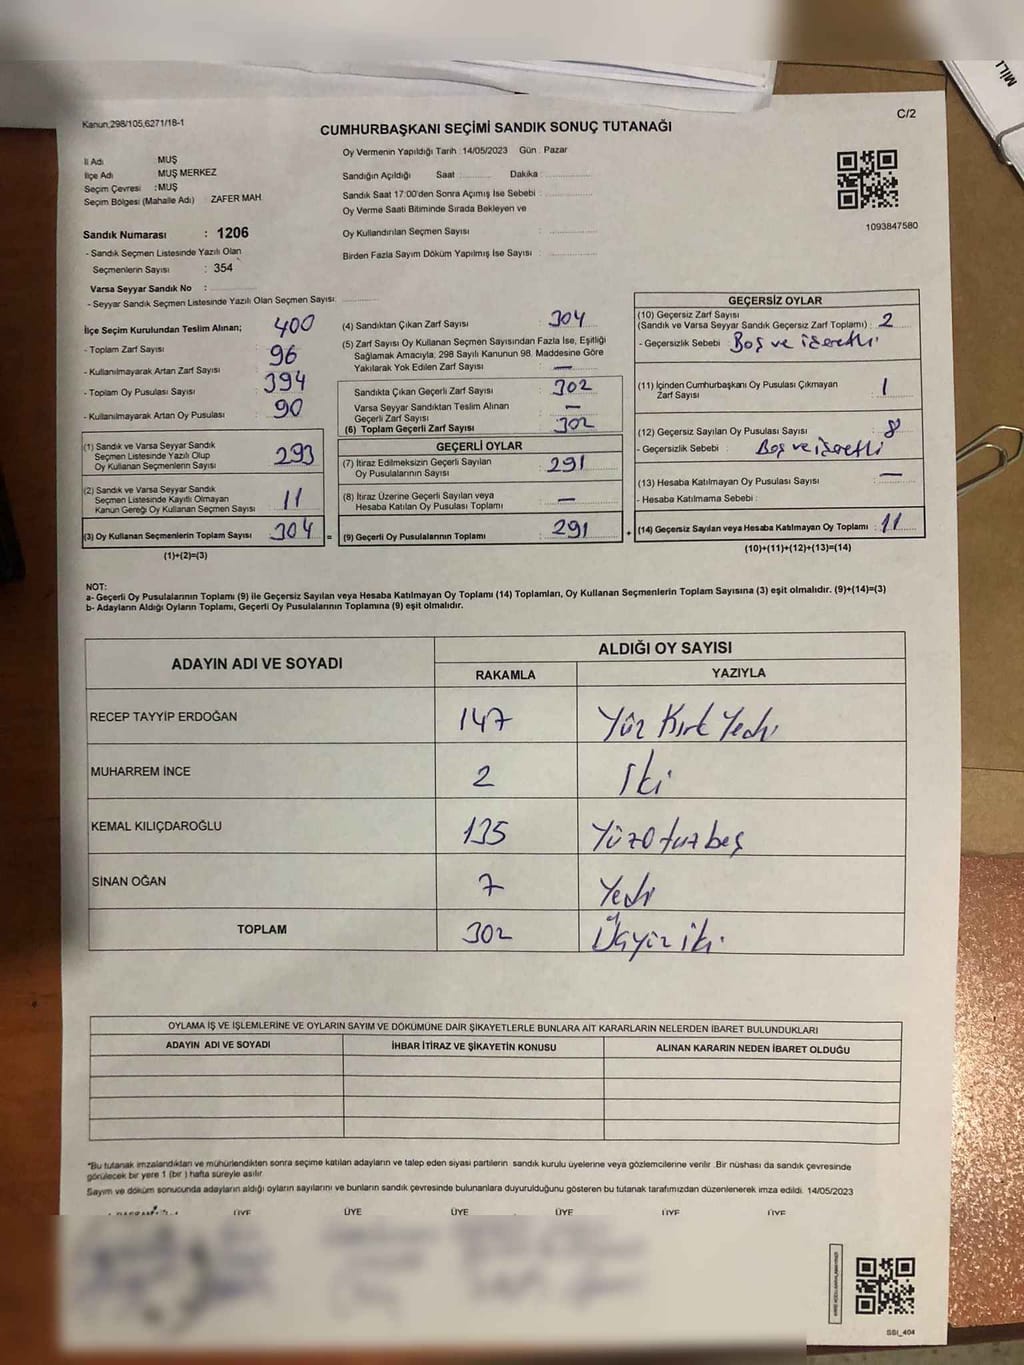 MİLLİ
Kanun,298/105,6271/18-1
C/2
CUMHURBAŞKANI SEÇİMİ SANDIK SONUÇ TUTANAĞI
İl Adı MUŞ
İlçe Adı MUŞ MERKEZ
Seçim Çevresi :MUŞ
Seçim Bölgesi (Mahalle Adı) ZAFER MAH.
Sandık Numarası : 1206
- Sandık Seçmen Listesinde Yazılı Olan
Seçmenlerin Sayısı : 354
Varsa Seyyar Sandık No :
- Seyyar Sandık Seçmen Listesinde Yazılı Olan Seçmen Sayısı:
Oy Vermenin Yapıldığı Tarih :14/05/2023 Gün : Pazar
Sandığın Açıldığı Saat : Dakika :
Sandık Saat 17:00'den Sonra Açımış İse Sebebi :
Oy Verme Saati Bitiminde Sırada Bekleyen ve
Oy Kullandırılan Seçmen Sayısı :
Birden Fazla Sayım Döküm Yapılmış İse Sayısı :
1093847580
İlçe Seçim Kurulundan Teslim Alınan; 400
- Toplam Zarf Sayısı
- Kullanılmayarak Artan Zarf Sayısı 96
- Toplam Oy Pusulası Sayısı 394
- Kullanılmayarak Artan Oy Pusulası 90
(1) Sandık ve Varsa Seyyar Sandık
Seçmen Listesinde Yazılı Olup
Oy Kullanan Seçmenlerin Sayısı 293
(2) Sandık ve Varsa Seyyar Sandık
Seçmen Listesinde Kayıtlı Olmayan
Kanun Gereği Oy Kullanan Seçmen Sayısı 11
(3) Oy Kullanan Seçmenlerin Toplam Sayısı 304 =
(1)+(2)=(3)
(4) Sandıktan Çıkan Zarf Sayısı : 304
(5) Zarf Sayısı Oy Kullanan Seçmen Sayısından Fazla İse, Eşitliği
Sağlamak Amacıyla; 298 Sayılı Kanunun 98. Maddesine Göre
Yakılarak Yok Edilen Zarf Sayısı : —
Sandıkta Çıkan Geçerli Zarf Sayısı : 302
Varsa Seyyar Sandıktan Teslim Alınan
Geçerli Zarf Sayısı : —
(6) Toplam Geçerli Zarf Sayısı : 302
GEÇERLİ OYLAR
(7) İtiraz Edilmeksizin Geçerli Sayılan
Oy Pusulalarının Sayısı : 291
(8) İtiraz Üzerine Geçerli Sayılan veya
Hesaba Katılan Oy Pusulası Toplamı : —
(9) Geçerli Oy Pusulalarının Toplamı : 291 +
GEÇERSİZ OYLAR
(10) Geçersiz Zarf Sayısı
(Sandık ve Varsa Seyyar Sandık Geçersiz Zarf Toplamı) : 2
- Geçersizlik Sebebi : Boş ve işaretli
(11) İçinden Cumhurbaşkanı Oy Pusulası Çıkmayan
Zarf Sayısı : 1
(12) Geçersiz Sayılan Oy Pusulası Sayısı : 8
- Geçersizlik Sebebi : Boş ve işaretli
(13) Hesaba Katılmayan Oy Pusulası Sayısı : —
- Hesaba Katılmama Sebebi :
(14) Geçersiz Sayılan veya Hesaba Katılmayan Oy Toplamı : 11
(10)+(11)+(12)+(13)=(14)
NOT:
a- Geçerli Oy Pusulalarının Toplamı (9) ile Geçersiz Sayılan veya Hesaba Katılmayan Oy Toplamı (14) Toplamları, Oy Kullanan Seçmenlerin Toplam Sayısına (3) eşit olmalıdır. (9)+(14)=(3)
b- Adayların Aldığı Oyların Toplamı, Geçerli Oy Pusulalarının Toplamına (9) eşit olmalıdır.
ADAYIN ADI VE SOYADI ALDIĞI OY SAYISI
RAKAMLA YAZIYLA
RECEP TAYYİP ERDOĞAN 147 Yüz Kırk Yedi
MUHARREM İNCE 2 İki
KEMAL KILIÇDAROĞLU 135 Yüzotuzbeş
SİNAN OĞAN 7 Yedi
TOPLAM 302 Üçyüz iki
OYLAMA İŞ VE İŞLEMLERİNE VE OYLARIN SAYIM VE DÖKÜMÜNE DAİR ŞİKAYETLERLE BUNLARA AİT KARARLARIN NELERDEN İBARET BULUNDUKLARI
ADAYIN ADI VE SOYADI İHBAR İTİRAZ VE ŞİKAYETİN KONUSU ALINAN KARARIN NEDEN İBARET OLDUĞU
*Bu tutanak imzalandıktan ve mühürlendikten sonra seçime katılan adayların ve talep eden siyasi partilerin sandık kurulu üyelerine veya gözlemcilerine verilir. Bir nüshası da sandık çevresinde
görülecek bir yere 1 (bir ) hafta süreyle asılır
Sayım ve döküm sonucunda adayların aldığı oyların sayılarını ve bunların sandık çevresinde bulunanlara duyurulduğunu gösteren bu tutanak tarafımızdan düzenlenerek imza edildi. 14/05/2023
ÜYE ÜYE ÜYE ÜYE ÜYE ÜYE
SSI_404